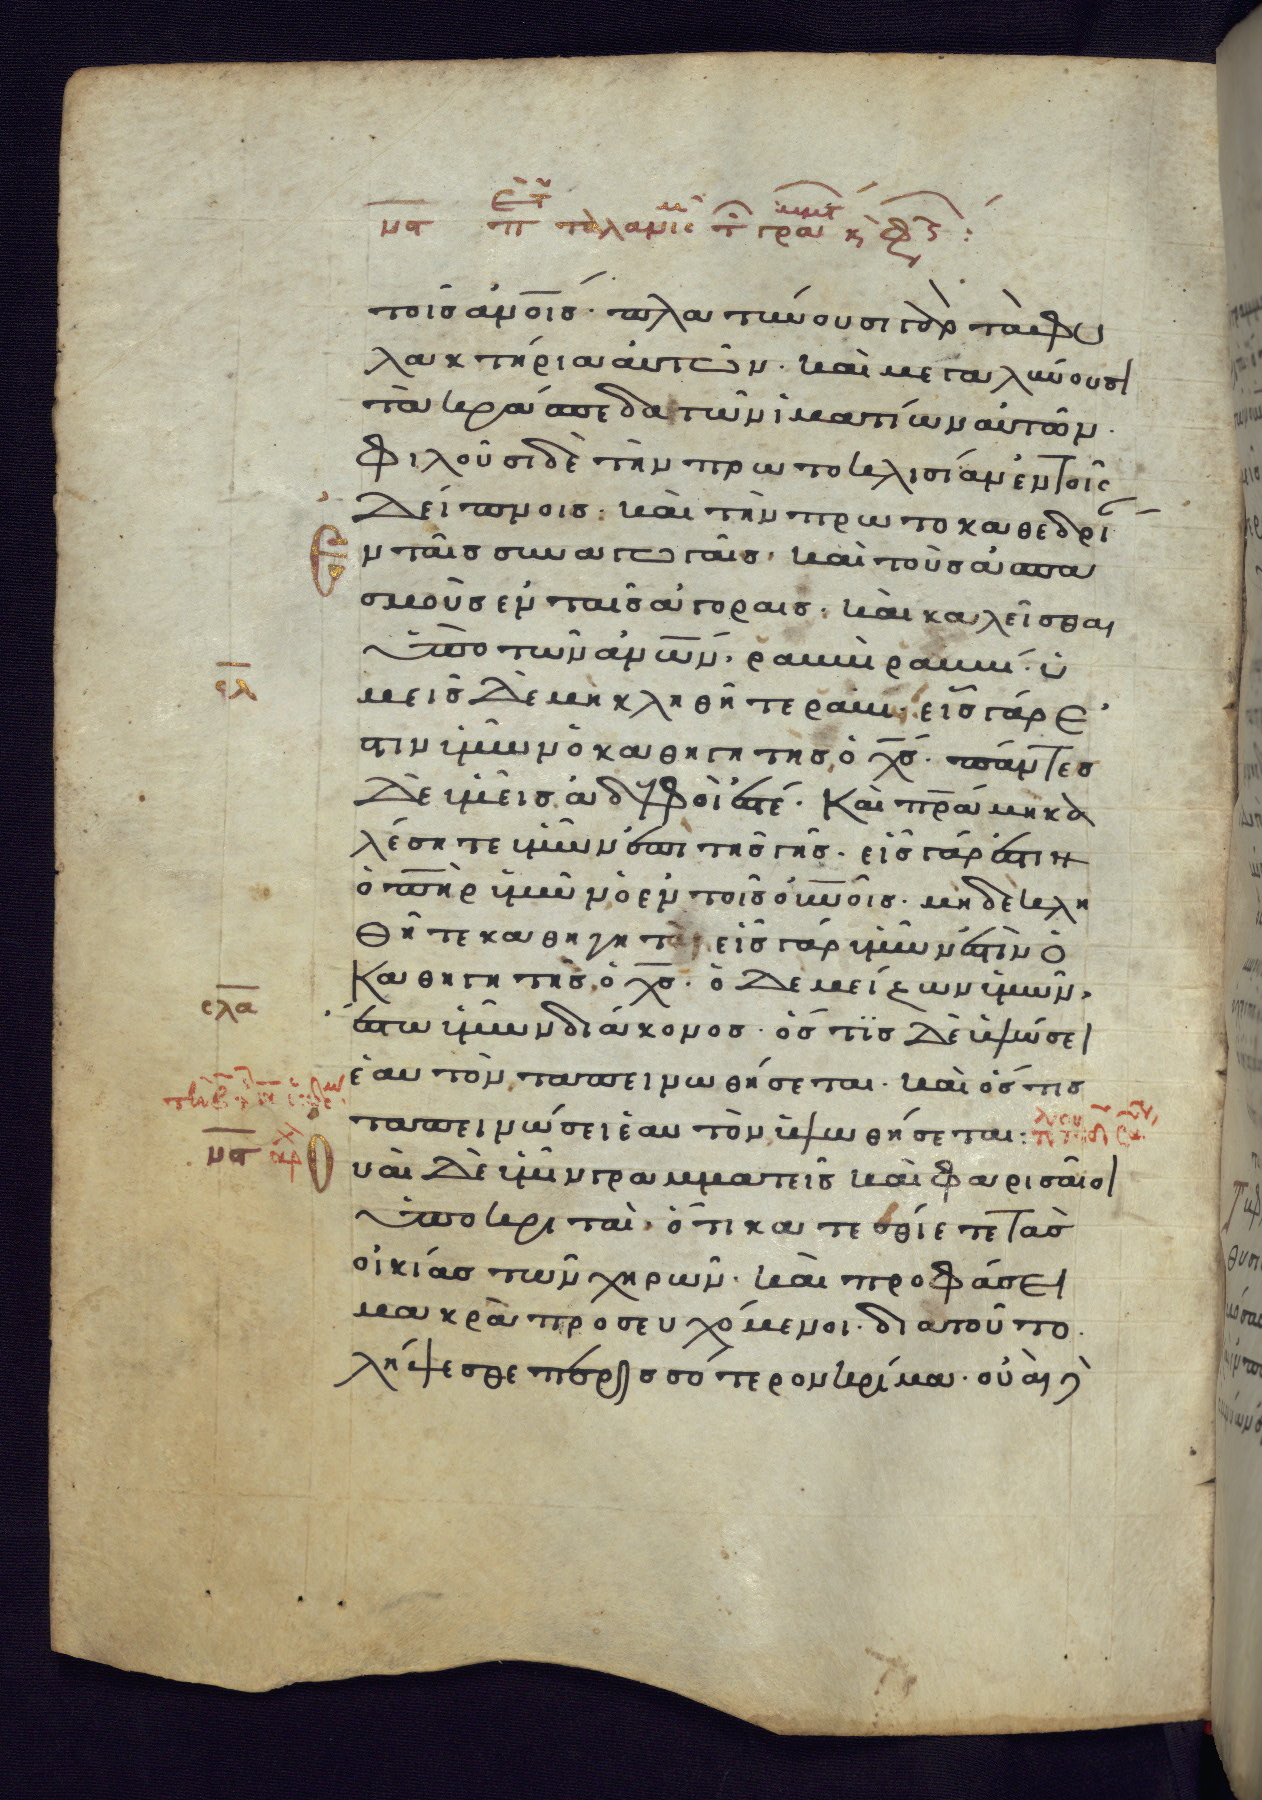 τοῖς ἀν̅ο̅ι̅ς̅· πλατύνουσι γὰρ τὰ φυ
λακτήρια αὐτῶν· καὶ μεγαλύνουσι
τὰ κράσπεδα τῶν ἱματίων αὐτῶν·
φιλοῦσι δὲ τὴν πρωτοκλισίαν ἐν τοῖς
δείπνοις· καὶ τὴν πρωτοκαθεδρί
ν ταῖς συναγωγαῖς· καὶ τοὺς ἀσπα
σμοὺς ἐν ταῖς ἀγοραῖς· καὶ καλεῖσθαι
ὑπὸ τῶν ἀν̅ω̅ν̅· ραββὶ ραββί· ὑ
μεῖς δὲ μὴ κληθῆτε ραββί· εἷς γάρ ἐ
στιν ὑμῶν ὁ καθηγητης ὁ χ̅ς̅· πάντες
δὲ ὑμεῖς ἀδελφοί ἐστέ· Καὶ π̅ρ̅α̅ μὴ κα
λέσητε ὑμῶν ἐπὶ τῆς γῆς· εἷς γάρ ἐστιν
ὁ π̅η̅ρ̅ ὑμῶν ὁ ἐν τοῖς οὐ̅ν̅οῖς· μηδὲ κλη
θῆτε καθηγηταὶ εἷς γάρ ὑμῶν ἐστὶν ὁ
Καθηγητὴς ὁ χ̅ς̅· ὁ δὲ μείζων ὑμῶν·
ἔστω ὑμῶν διάκονος· ὅς τις δὲ ὑψώσει
ἑαυτὸν, ταπεινωθήσεται· καὶ ὅς τις
ταπεινώσει ἑαυτὸν, ὑψωθήσεται:
μ̅α̅ ἀρχ Οὐαὶ δὲ ὑμῖν γραμματεῖς καὶ φαρισαῖοι
ὑποκριταὶ· ὅτι κατεσθίετε τὰς
οἰκίας τῶν χηρῶν· καὶ προφάσει
μακρὰ προσευχόμενοι· διατοῦτο
λήψεσθε περισσότερον κρίμα· οὐαὶ
σ̅λ̅
σ̅λ̅α̅